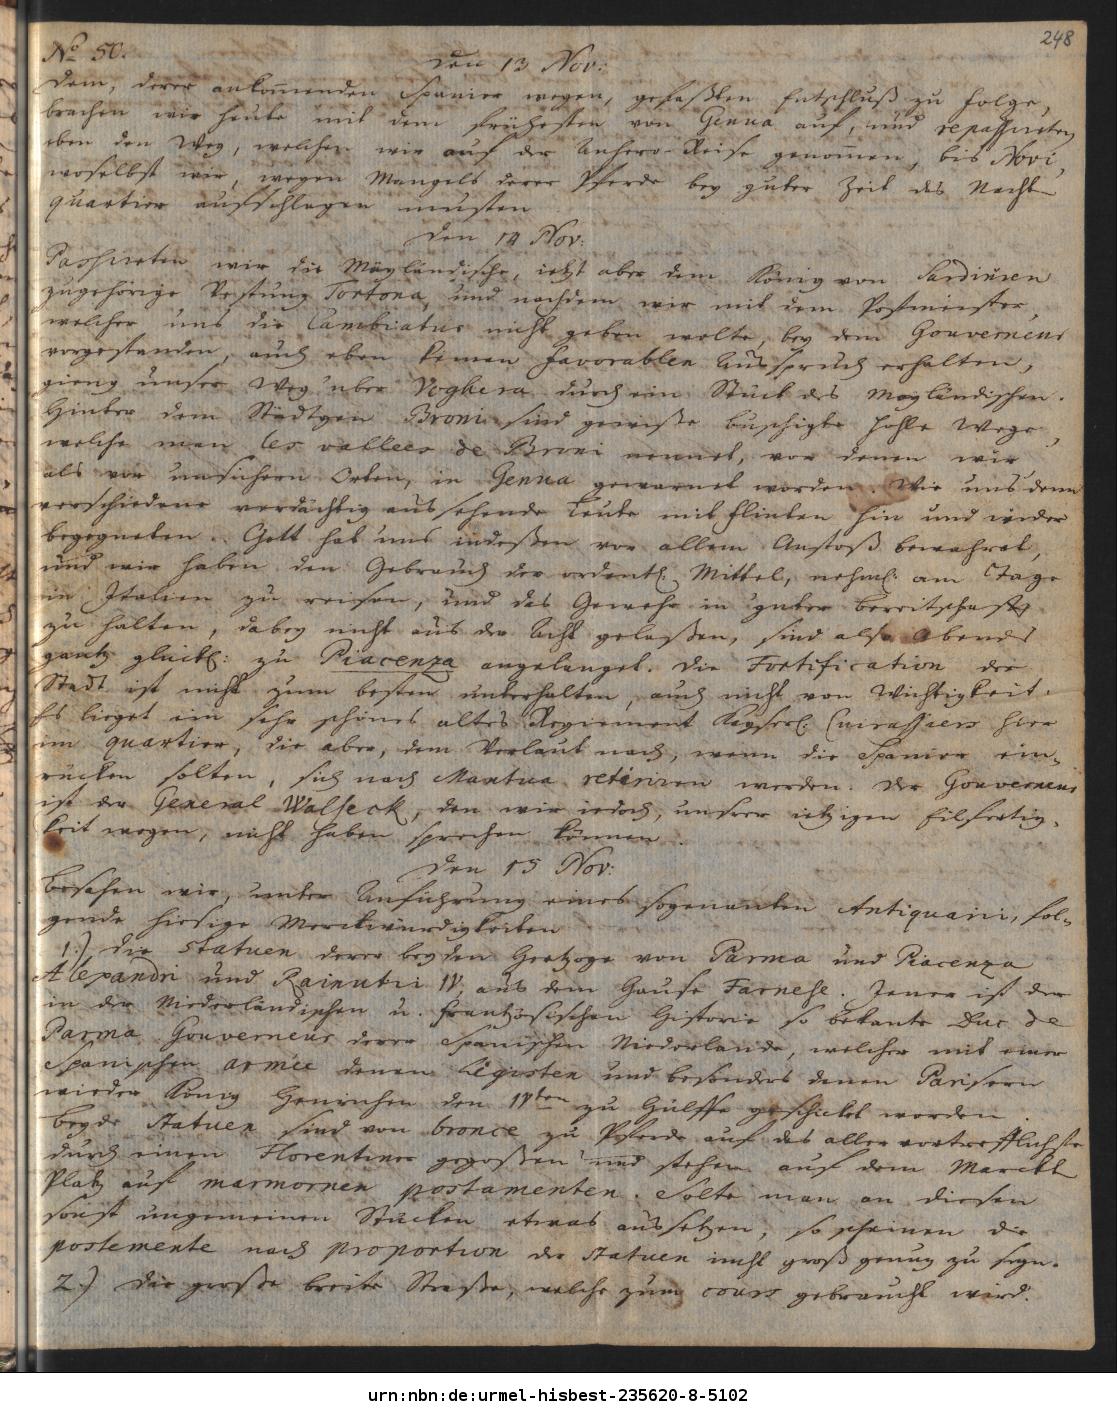 248
No 50.
den 13 Nov:
Dem, derer ankom̅enden Spanier wegen, gefaßten Entschluß zu folge,
brachen wir heute mit dem frühesten von Genua auf, und repassireten
eben den Weg, welchen wir auf der Anhero-Reise genom̅en, bis Novi,
woselbst wir, wegen Mangels derer Pferde bey guter Zeit das Nacht-
quartier aufschlagen musten
den 14 Nov:
Passireten wir die Mayländische, jetzt aber dem König von Sardinien
zugehörige Vestung Tortona, und nachdem wir mit dem Postmeister,
welcher uns die Cambiatur nicht geben wolte, bey dem Gouverneur
vorgestanden, auch eben keinen favorablen Ausspruch erhalten,
gieng unser Weg über Voghera durch ein Stück des Mayländischen.
Hinter dem Städtgen Broni sind gewiße buschigte hohle Wege,
welche man les vallees de Broni nennet, vor denen wir
als vor unsichern Orten, in Genua gewarnet worden. Wie uns denn
verschiedene verdächtig aussehende Leute mit Flinten hin und wieder
begegneten. Gott hat uns indeßen vor allem Anstoß bewahret,
und wir haben den Gebrauch der ordentl: Mittel, nehml: am Tage
in Italien zu reisen, und das Gewehr in guter bereitschafft
zu halten, dabey nicht aus der Acht gelaßen, sind also Abends
gantz glückl: zu Piacenza angelanget. Die Fortification der
Stadt ist nicht zum besten unterhalten, auch nicht von Wichtigkeit.
Es lieget ein sehr schönes altes Regiement Kayserl: Cuirassiers hier
im quartier, die aber, dem Verlaut nach, wenn die Spanier ein-
rücken solten, sich nach Mantua retiriren werden. Der Gouverneur
ist der General Walseck, den wir jedoch, unserer jetzigen Eilfertig-
keit wegen, nicht haben sprechen können.
den 15 Nov:
besahen wir, unter Anführung eines sogenanten Antiquarii, fol-
gende hiesige Merckwürdigkeiten
1.) die statuen derer beyden Hertzoge von Parma und Piacenza
Alexandri und Rainutii IV. aus dem Hause Farnese. Jener ist der
in der Niederländischen u. französischen Historie so bekante Duc de
Parma Gouverneur derer Spanischen Niederlande, welcher mit einer
Spanischen armée denen Ligisten und besonders denen Parisern
wieder König Henrichen den IVten zu Hülffe geschicket worden.
beyde Statuen sind von bronce zu Pferde auf das aller vortrefflichste
durch einen Florentiner gegoßen und stehen auf dem Marckt
Platz auf marmornen postamenten. Solte man an diesen
sonst ungemeinen Stücken etwas aussetzen, so scheinen die
postemente nach proportion der statuen nicht groß genug zu seyn.
2.) die große breite Straße, welche zum cours gebraucht wird.
urn:nbn:de:urmel-hisbest-235620-8-5102